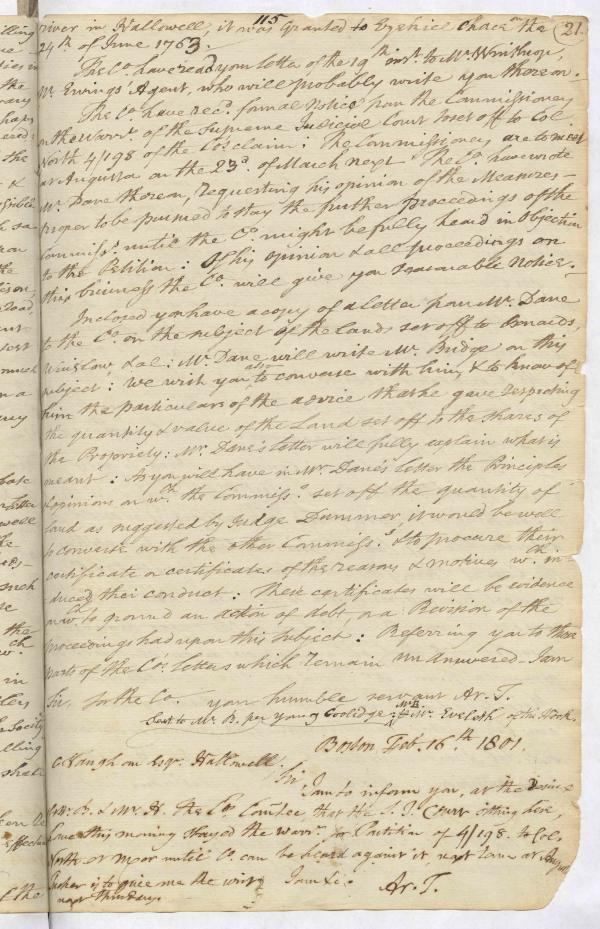 115
21
river in Hallowell, it was Granted to Ezekiel Chace on the
24th of June 1763.
The Co. have read your letter of the 19th inst. to Mr. Winthrop,
Mr. Ewings Agent, who will probably write you thereon.
The Co. have recd. formal notice from the Commissioners
on the Warrt. of the Supreme Judicial Court to set off to Col.
North 4/198 of the Co's claim: The Commissioners are to meet
at Augusta on the 23d. of March next. The Co. have wrote
Mr. Dane thereon, requesting his opinion of the Measures
proper to be pursued to stay the further proceedings of the
Commissrs. until the Co. might be fully heard in Objection
to the Petition: Of his opinion & all proceedings on
this business the Co. will give you reasonable Notice.
Inclosed you have a copy of a letter from Mr. Dane
to the Co. on the subject of the lands set off to
Winslow, & al: Mr. Dane will write Mr. Bridge on this
subject: We wish you also to converse with him, & to know of
him the particulars of the advice that he gave respecting
the quantity & value of the Land set off to the shares of
the Propriety: Mr. Dane's letter will fully explain what is
meant: As you will have in Mr. Dane's letter the Principles
& opinions on wch. the Commissrs. set off the quantity of
land as suggested by Judge Dummer, it would be well
to converse with the other Commissrs. & to procure their
certificate or certificates of the reasons & motives wch. in-
duced their conduct: These certificates will be evidence
on wch. to ground an action of debt, or a Revision of the
proceedings had upon this subject: Referring you to those
parts of the Co's. letters which remain unanswered I am
Sir, for the Co. your humble servant Ar. T.
Sent to Mr. B. per young Coolidge Mr. Eveleth of the
Boston Feb. 16th 1801.
C. Vaughan Esqr. Hallowell.
Sir
I am to inform you, at the Desire
of Mr. B. & Mr. H. the Co. Comtee, that the S. J. Court sitting here,
have this morning stayed the Warrt. for Partition of 4/198 to Col.
North or more until Co. can be heard against it, next term at
Tucker is to give me the writ I am &c. Ar. T.
next Thursday.